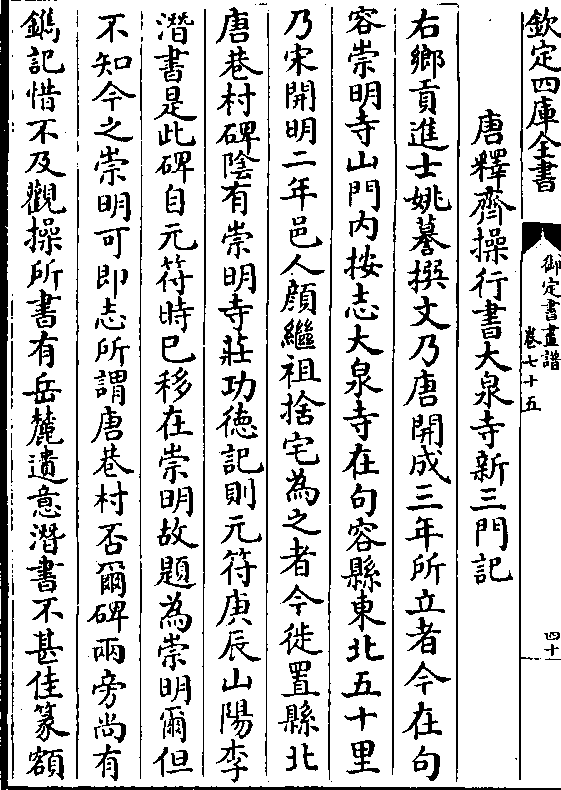 欽定四庫全書
御定書畫譜
卷七十五
四十
唐釋齊操行書大泉寺新三門記
右鄉貢進士姚謩撰文乃唐開成三年所立者今在句
容崇明寺山門内按志大泉寺在句容縣東北五十里
乃宋開明二年邑人顔繼祖捨宅為之者今徙置縣北
唐巷村碑陰有崇明寺莊功徳記則元符庚辰山陽李
潛書是此碑自元符時已移在崇明故題為崇明爾但
不知今之崇明可即志所謂唐巷村否爾碑兩旁尚有
鐫記惜不及觀操所書有岳麓遺意潛書不甚佳篆額